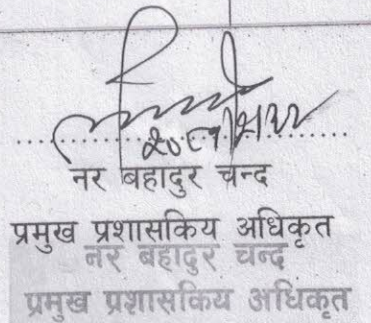 नर बहादुर चन्द
प्रमुख प्रशासकिय अधिकृत
नर बहादुर चन्द
प्रमुख प्रशासकिय अधिकृत